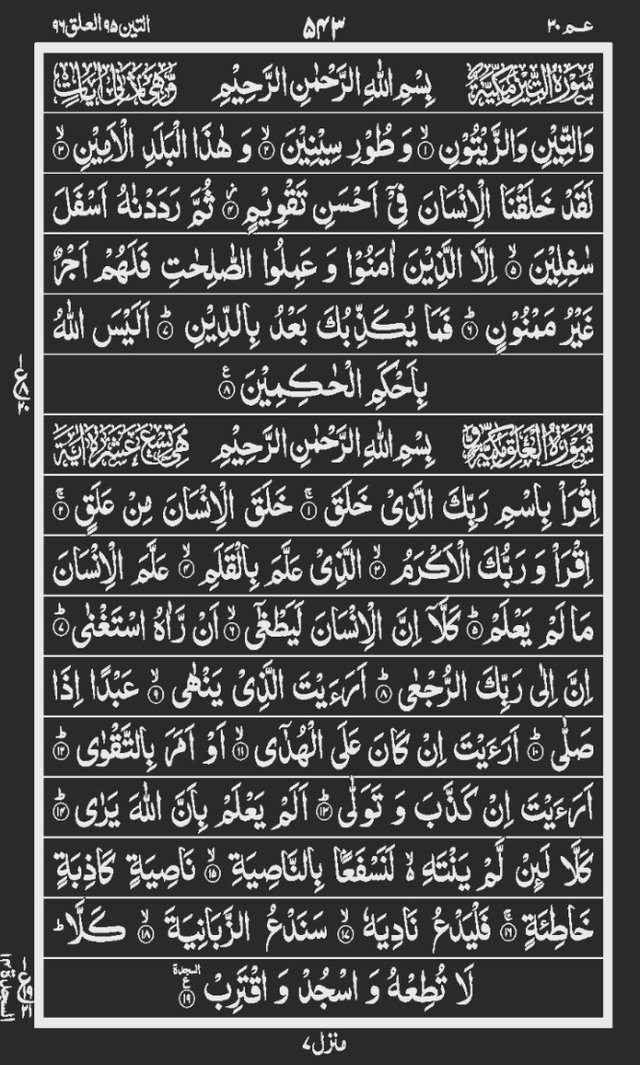 عـم ٣٠ ٥٤٣ التين ٩٥ العلق ٩٦
سُوْرَةُ التِّيْنِ مَكِّيَّةٌ بِسْمِ اللّٰهِ الرَّحْمٰنِ الرَّحِيْمِ وَّهِيَ ثَمَانِيْ اٰيَاتٍ
وَالتِّيْنِ وَالزَّيْتُوْنِ ۙ﴿۱﴾ وَ طُوْرِ سِيْنِيْنَ ۙ﴿۲﴾ وَ هٰذَا الْبَلَدِ الْاَمِيْنِ ۙ﴿۳﴾
لَقَدْ خَلَقْنَا الْاِنْسَانَ فِيْۤ اَحْسَنِ تَقْوِيْمٍ ؗ﴿۴﴾ ثُمَّ رَدَدْنٰهُ اَسْفَلَ
سٰفِلِيْنَ ۙ﴿۵﴾ اِلَّا الَّذِيْنَ اٰمَنُوْا وَ عَمِلُوا الصّٰلِحٰتِ فَلَهُمْ اَجْرٌ
غَيْرُ مَمْنُوْنٍ ؕ﴿۶﴾ فَمَا يُكَذِّبُكَ بَعْدُ بِالدِّيْنِ ؕ﴿۷﴾ اَلَيْسَ اللّٰهُ
بِاَحْكَمِ الْحٰكِمِيْنَ ﴿۸﴾ ع
سُوْرَةُ الْعَلَقِ مَكِّيَّةٌ وَّ بِسْمِ اللّٰهِ الرَّحْمٰنِ الرَّحِيْمِ هِيَ تِسْعَ عَشْرَةَ اٰيَةً
اِقْرَاْ بِاسْمِ رَبِّكَ الَّذِيْ خَلَقَ ۚ﴿۱﴾ خَلَقَ الْاِنْسَانَ مِنْ عَلَقٍ ۚ﴿۲﴾
اِقْرَاْ وَ رَبُّكَ الْاَكْرَمُ ۙ﴿۳﴾ الَّذِيْ عَلَّمَ بِالْقَلَمِ ۙ﴿۴﴾ عَلَّمَ الْاِنْسَانَ
مَا لَمْ يَعْلَمْ ؕ﴿۵﴾ كَلَّاۤ اِنَّ الْاِنْسَانَ لَيَطْغٰۤى ۙ﴿۶﴾ اَنْ رَّاٰهُ اسْتَغْنٰى ؕ﴿۷﴾
اِنَّ اِلٰى رَبِّكَ الرُّجْعٰى ؕ﴿۸﴾ اَرَءَيْتَ الَّذِيْ يَنْهٰى ۙ﴿۹﴾ عَبْدًا اِذَا
صَلّٰى ؕ﴿۱۰﴾ اَرَءَيْتَ اِنْ كَانَ عَلَى الْهُدٰۤى ۙ﴿۱۱﴾ اَوْ اَمَرَ بِالتَّقْوٰى ؕ﴿۱۲﴾
اَرَءَيْتَ اِنْ كَذَّبَ وَ تَوَلّٰى ؕ﴿۱۳﴾ اَلَمْ يَعْلَمْ بِاَنَّ اللّٰهَ يَرٰى ؕ﴿۱۴﴾
كَلَّا لَئِنْ لَّمْ يَنْتَهِ ۙ۬ لَنَسْفَعًۢا بِالنَّاصِيَةِ ۙ﴿۱۵﴾ نَاصِيَةٍ كَاذِبَةٍ
خَاطِئَةٍ ۚ﴿۱۶﴾ فَلْيَدْعُ نَادِيَهٗ ۙ﴿۱۷﴾ سَنَدْعُ الزَّبَانِيَةَ ۙ﴿۱۸﴾ كَلَّا ؕ
لَا تُطِعْهُ وَ اسْجُدْ وَ اقْتَرِبْ ﴿۱۹﴾ السجدة ع
منزل ٧